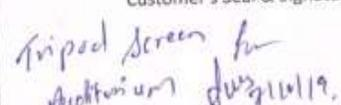 Customer's Seal & Signat
Tripod Screen for
Auditorium